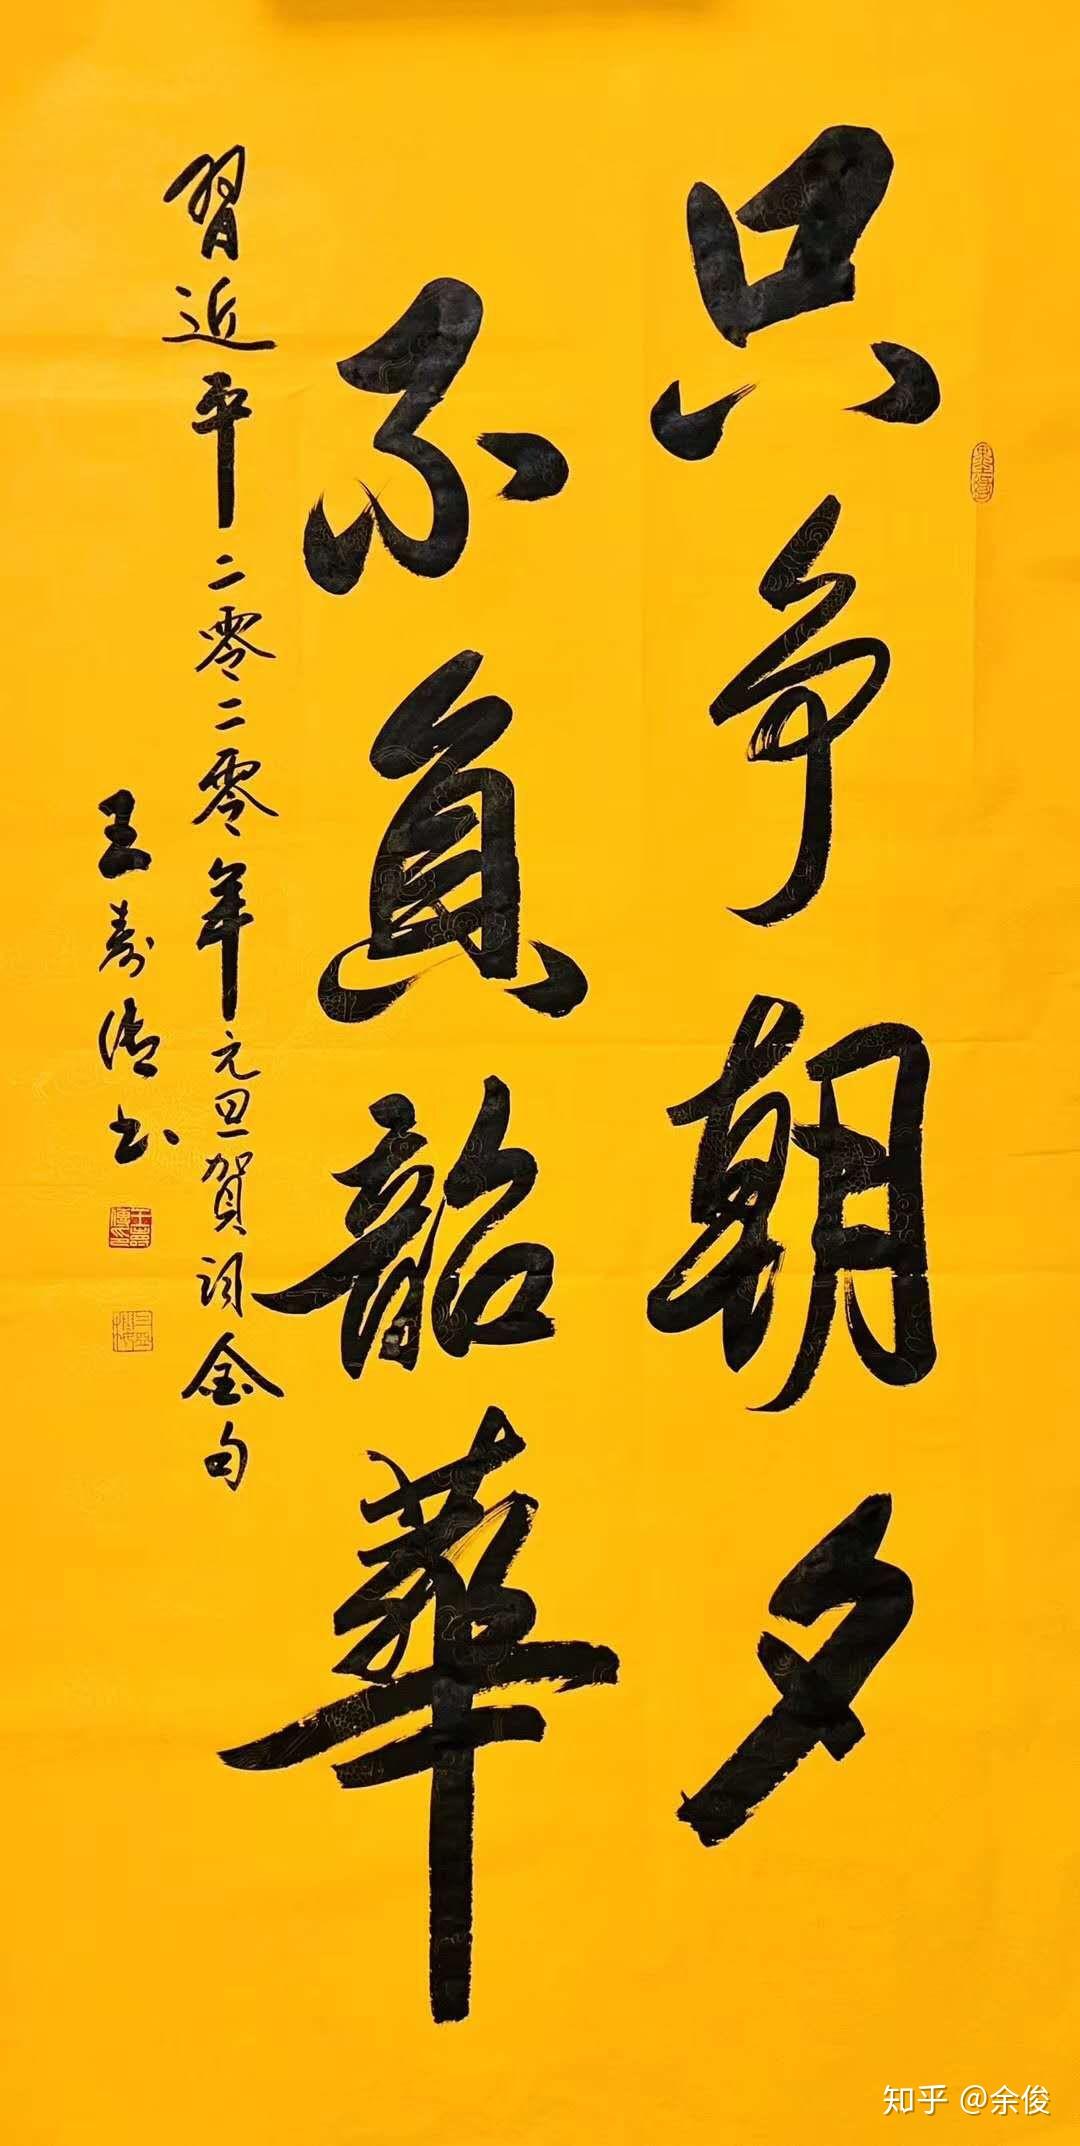 只争朝夕
不負韶華
習近平二零二零年元旦賀词金句
王寿
书
知乎 @余俊